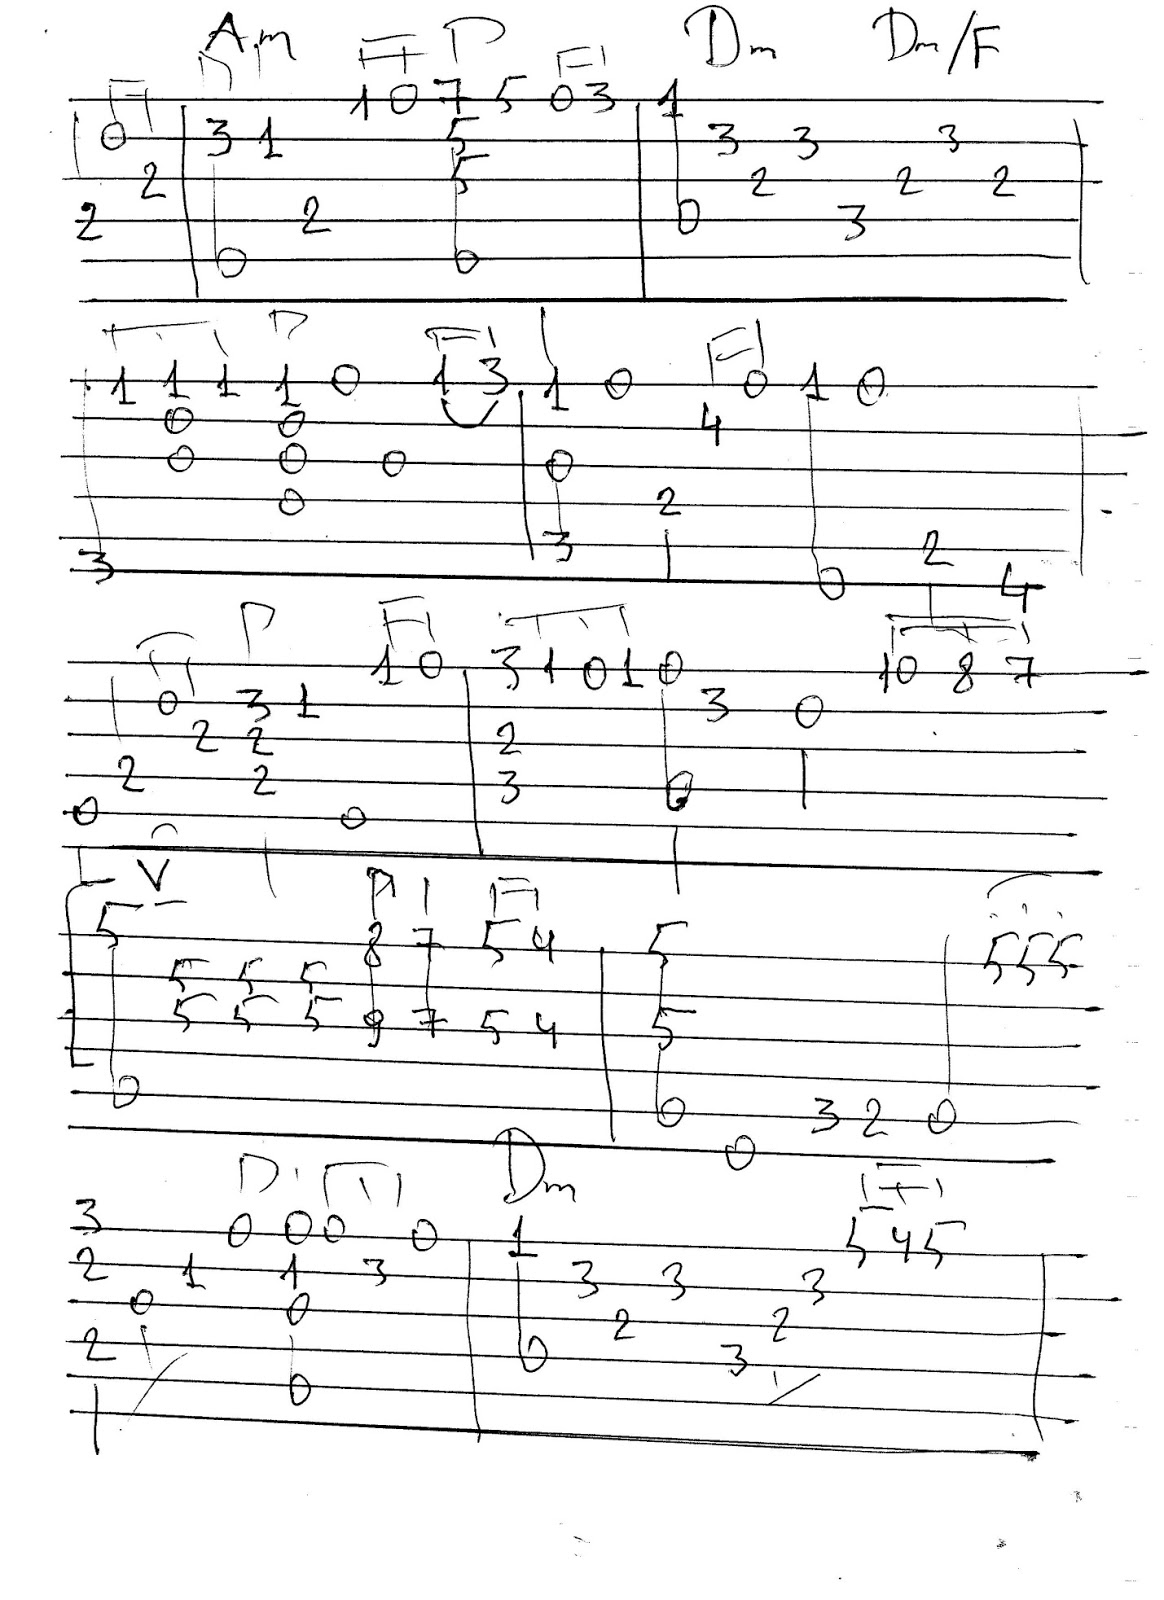 Am Dm Dm/F
1 0 7 5 0 3 1
0 3 1 5 3 3 3
2 5 2 2 2
2 2 0 3
0 0
1 1 1 1 0 1 3 1 0 0 1 0
0 0 4
0 0 0 0
0 2
3 2
3 0 4
1 0 3 1 0 1 0 10 8 7
0 3 1 3 0
2 2 2
2 2 3 0
0 0
V
5 8 7 5 4 5 5 5 5
5 5 5
5 5 5 9 7 5 4 5
0 0 3 2 0
0
Dm
3 0 0 0 0 1 5 4 5
2 1 1 3 3 3 3
0 0 2 2
2 0 3
0